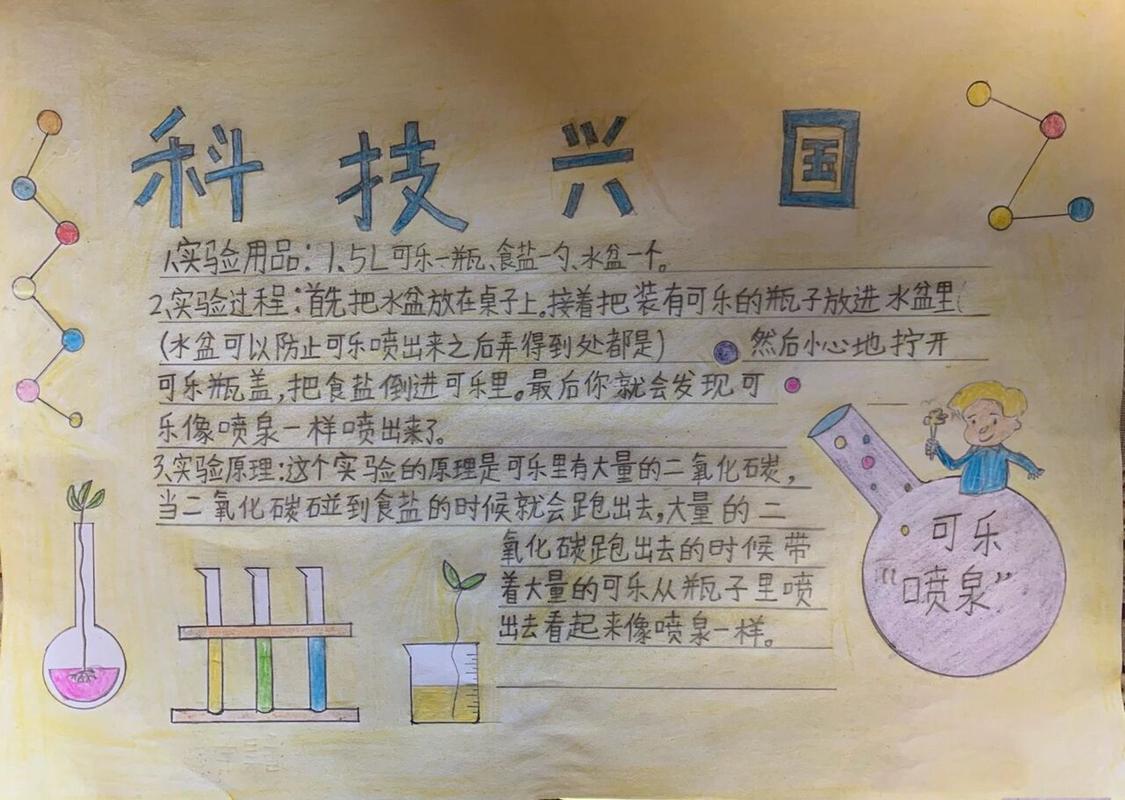 科技兴国
1、实验用品：1.5L可乐一瓶、食盐一勺、水盆一个。
2、实验过程：首先把水盆放在桌子上。接着把装有可乐的瓶子放进水盆里(
(水盆可以防止可乐喷出来之后弄得到处都是) 然后小心地拧开
可乐瓶盖，把食盐倒进可乐里。最后你就会发现可
乐像喷泉一样喷出来了。
3、实验原理：这个实验的原理是可乐里有大量的二氧化石炭，
当二氧化碳碰到食盐的时候就会跑出去，大量的二
氧化碳跑出去的时候带
着大量的可乐从瓶子里喷
出去看起来像喷泉一样。
可乐
“喷泉”